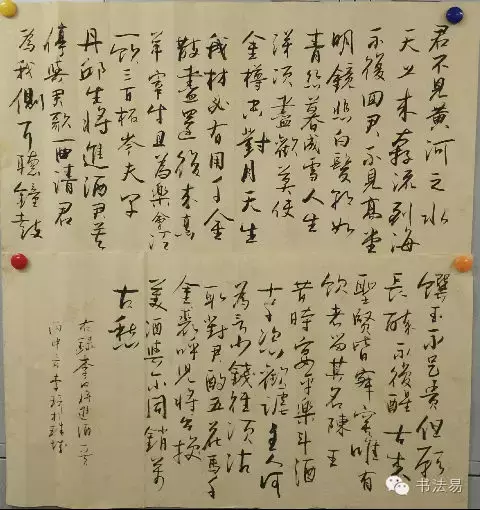 君不见黄河之水
天上来奔流到海
不復回君不見高堂
明鏡悲白髮朝如
青丝暮成雪人生
得須盡歡莫使
金樽空對月天生
我材必有用千金
散盡還復来烹
羊宰牛且為樂會
飲三百杯岑夫子
丹邱生将進酒君莫
停與君歌一曲清君
為我側耳聽鐘鼓
饌玉不足貴但願
長醉不復醒古来
聖賢皆寂寞唯有
飲者留其名陳王
昔時宴平樂斗酒
十千恣歡謔主人何
為言少錢徑須沽
取對君酌五花馬千
金裘呼兒將出换
美酒與尔同銷萬
古愁
右録李白将進酒一首
丙申
书法易